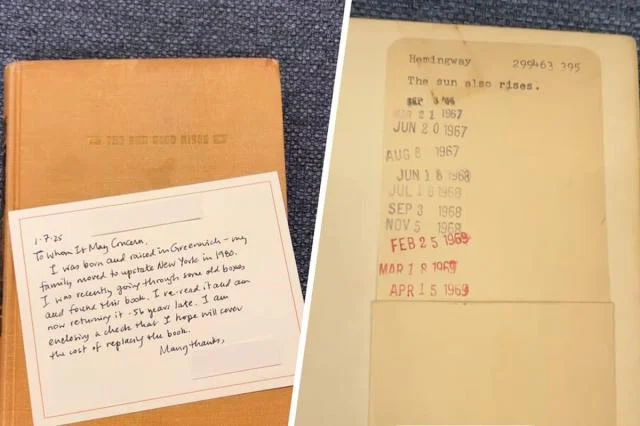 THE SUN ALSO RISES
1.7.25
To Whom It May Concern,
I was born and raised in Greenwich - my
family moved to upstate New York in 1980.
I was recently going through some old boxes
and found this book. I re-read it and am
now returning it - 56 years late. I am
enclosing a check that I hope will cover
the cost of replacing the book.
Many thanks,
Hemingway 299463 395
The sun also rises.
SEP
21 1967
JUN 20 1967
AUG 8 1967
JUN 18 1968
JUL 18 1968
SEP 3 1968
NOV 5 1968
FEB 25 1969
MAR 18 1969
APR 15 1969